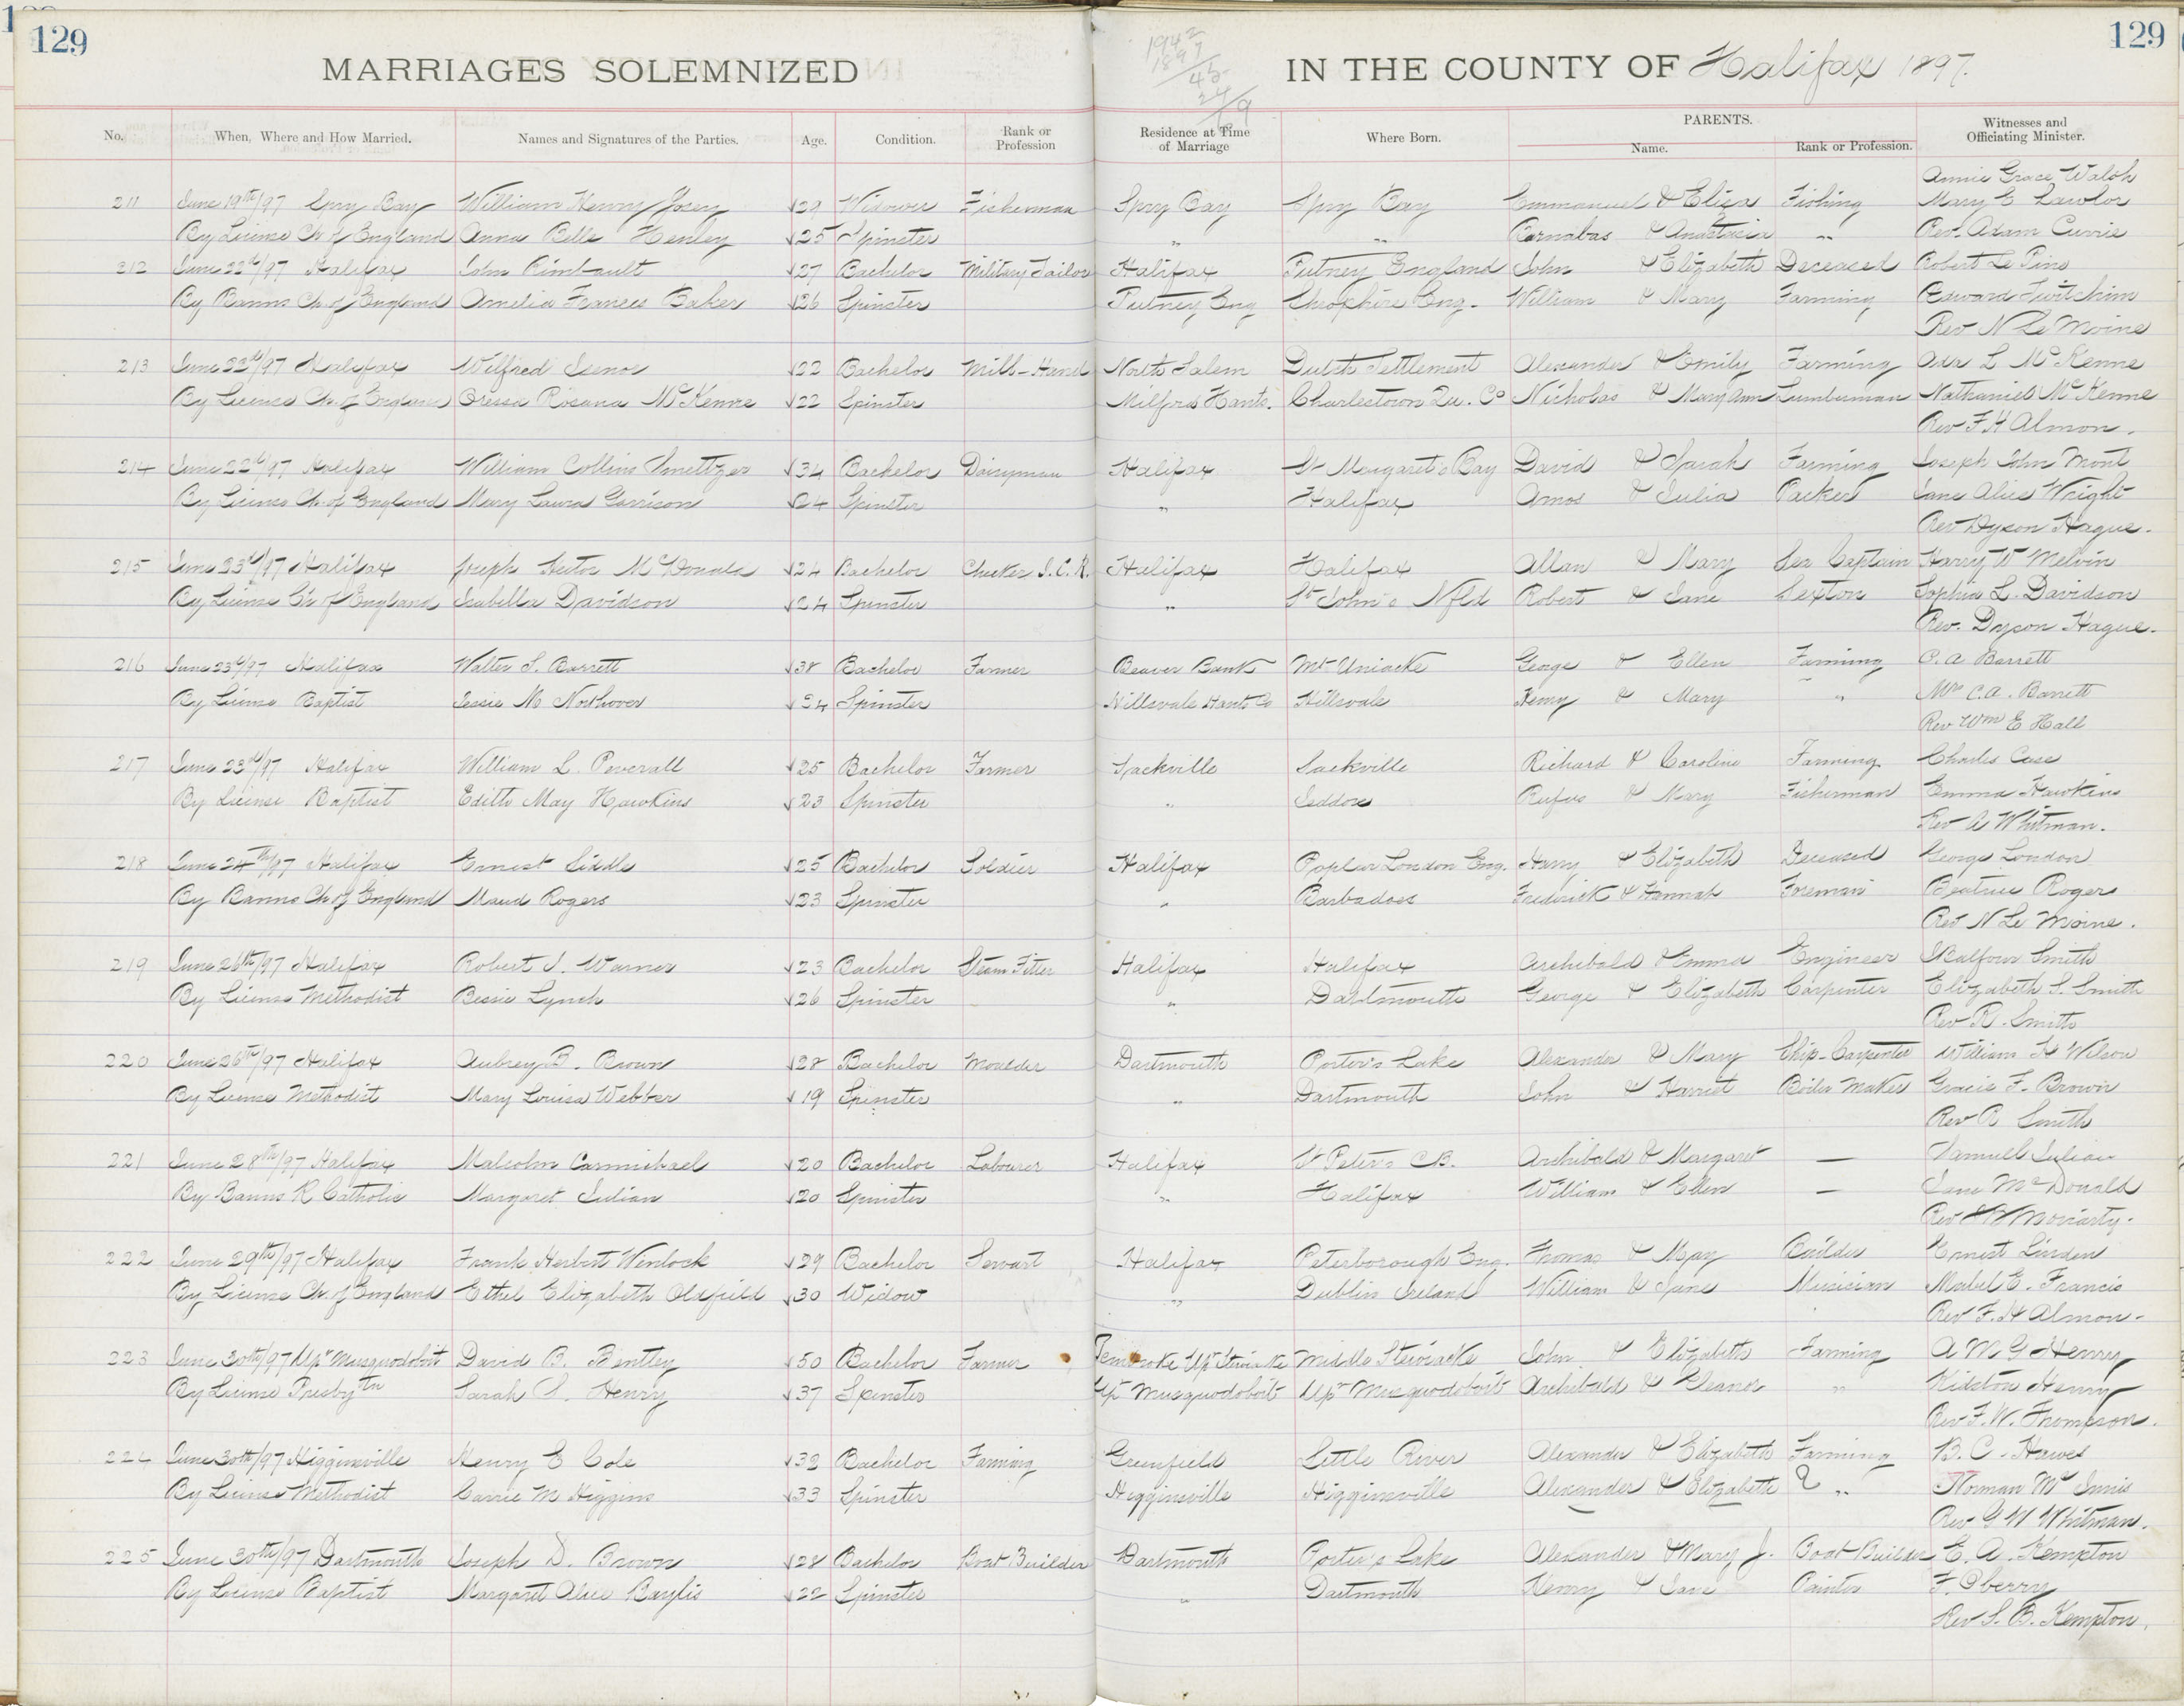 129
129
MARRIAGES SOLEMNIZED
IN THE COUNTY OF Halifax 1897.
1942
1897
45
24
69
No. When, Where and How Married. Names and Signatures of the Parties. Age. Condition. Rank or Profession Residence at Time of Marriage Where Born. PARENTS. Name. Rank or Profession. Witnesses and Officiating Minister.
Annie Grace Walsh
211 June 19th/97 Spry Bay William Henry 29 Widower Fisherman Spry Bay Spry Bay Emmanuel & Eliza Fishing Mary E Lawlor
By License Ch of England Anna Belle Henley 25 Spinster " " Barnabas & Anastacia " Rev. Adam Currie
212 June 22nd/97 Halifax John Rimbault 27 Bachelor Military Tailor Halifax Putney England John & Elizabeth Deceased Robert Le Pine
By Banns Ch. of England Amelia Frances Baker 26 Spinster Putney Eng Shropshire Eng. William & Mary Farming Edward Twitchim
Rev N Le Moine
213 June 22nd/97 Halifax Wilfred Isenor 22 Bachelor Mill-Hand North Salem Dutch Settlement Alexander & Emily Farming Ada L McKenne
By License Ch. of England Oressa Rosana McKenne 22 Spinster Milford Hants. Charlestown Qu. Co Nicholas & Mary Ann Lumberman Nathaniel McKenne
Rev F H Almon.
214 June 22nd/97 Halifax William Collins Smeltzer 34 Bachelor Dairyman Halifax St Margaret's Bay David & Sarah Farming Joseph John Mont
By License Ch. of England Mary Laura Garrison 24 Spinster " Halifax Amos & Julia Packer Jane Alice Wright
Rev Dyson Hague.
215 June 23d/97 Halifax Joseph Hector McDonald 24 Bachelor Checker I.C.R. Halifax Halifax Allan & Mary Sea Captain Harry W Melvin
By License Ch of England Isabella Davidson 24 Spinster " St John's Nfld Robert & Jane Sexton Sophia L. Davidson
Rev. Dyson Hague.
216 June 23d/97 Halifax Walter S. Barrett 38 Bachelor Farmer Beaver Bank Mt Uniacke George & Ellen Farming C. A Barrett
By License Baptist Jessie M Northover 24 Spinster Hillsvale Hants Co Hillsvale Henry & Mary " Mrs C.A. Barrett
Rev Wm E Hall
217 June 23rd/97 Halifax William L. Peverall 25 Bachelor Farmer Sackville Sackville Richard & Caroline Farming Charles Case
By License Baptist Edith May Hawkins 23 Spinster " Seddore Rufus & Mary Fisherman Emma Hawkins
Rev A Whitman.
218 June 24th/97 Halifax Ernest Siddle 25 Bachelor Soldier Halifax Poplar London Eng. Harry & Elizabeth Deceased George London
By Banns Ch of England Maud Rogers 23 Spinster " Barbadoes Frederick & Hannah Foreman Beatrice Rogers
Rev N Le Moine.
219 June 26th/97 Halifax Robert J. Warner 23 Bachelor Steam Fitter Halifax Halifax Archibald & Emma Engineer Balfour Smith
By License Methodist Bessie Lynch 26 Spinster " Dartmouth George & Elizabeth Carpenter Elizabeth S. Smith
Rev R. Smith
220 June 26th/97 Halifax Aubrey B. Brown 28 Bachelor Moulder Dartmouth Porter's Lake Alexander & Mary Ship-Carpenter William H Wilson
By License Methodist Mary Louisa Webber 19 Spinster " Dartmouth John & Harriet Boiler Maker Gracie F. Brown
Rev R Smith
221 June 28th/97 Halifax Malcolm Carmichael 20 Bachelor Labourer Halifax St Peter's CB. Archibald & Margaret — Samuel Julian
By Banns R Catholic Margaret Julian 20 Spinster " Halifax William & Ellen — Jane McDonald
Rev Moriarty.
222 June 29th/97 Halifax Frank Herbert Wenlock 29 Bachelor Servant Halifax Peterborough Eng. Thomas & May Builder Ernest Linden
By License Ch. of England Ethel Elizabeth Oldfield 30 Widow " Dublin Ireland William & Jane Musician Mabel E. Francis
Rev F.H Almon.
223 June 30th/97 Upr Musquodoboit David B. Bentley 50 Bachelor Farmer Pembroke Upr Stewiacke Middle Stewiacke John & Elizabeth Farming A M G Henry
By License Presbytn Sarah S. Henry 37 Spinster Upr Musquodoboit Upr Musquodoboit Archibald & Eleanor " Kidston Henry
Rev F.W. Thompson.
224 June 30th/97 Higginsville Henry E Cole 32 Bachelor Farming Greenfield Little River Alexander & Elizabeth Farming B. C. Hawes
By License Methodist Carrie M Higgins 33 Spinster Higginsville Higginsville Alexander & Elizabeth ? " Norman McInnis
Rev G W Whitman.
225 June 30th/97 Dartmouth Joseph D. Brown 28 Bachelor Boat Builder Dartmouth Porter's Lake Alexander & Mary J. Boat Builder E. A. Kempton
By License Baptist Margaret Alice Baylis 22 Spinster " Dartmouth Henry & Jane Painter
Rev S. B. Kempton.